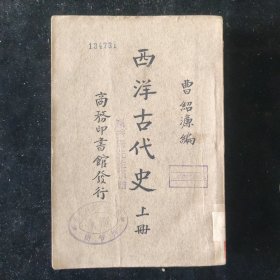 134731
曹紹濂編
西洋古代史 上冊
商務印書館發行